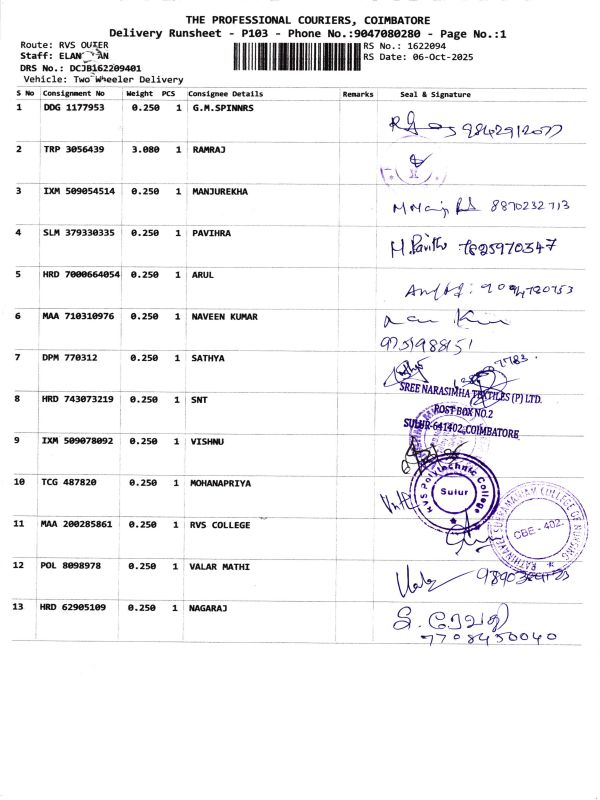 THE PROFESSIONAL COURIERS, COIMBATORE
Delivery Runsheet - P103 - Phone No.:9047080280 - Page No.:1
Route: RVS OUTER RS No.: 1622094
Staff: RS Date: 06-Oct-2025
DRS No.: DCJB162209401
Vehicle: Two Wheeler Delivery
S No Consignment No Weight PCS Consignee Details Remarks Seal & Signature
1 DDG 1177953 0.250 1 G.M.SPINNRS
2 TRP 3056439 3.080 1 RAMRAJ
3 IXM 509054514 0.250 1 MANJUREKHA 8870232713
4 SLM 379330335 0.250 1 PAVIHRA M.Pavithr 7825970347
5 HRD 7000664054 0.250 1 ARUL
6 MAA 710310976 0.250 1 NAVEEN KUMAR
9751988151
7 DPM 770312 0.250 1 SATHYA
SREE NARASIMHA TEXTILES (P) LTD.
8 HRD 743073219 0.250 1 SNT
POST BOX NO.2
SULUR-641402, COIMBATORE
9 IXM 509078092 0.250 1 VISHNU
10 TCG 487820 0.250 1 MOHANAPRIYA
RVS Polytechnic College
Sulur
11 MAA 200285861 0.250 1 RVS COLLEGE
RATHINAVEL SUBRAMANIAM COLLEGE OF NURSING
CBE - 402.
12 POL 8098978 0.250 1 VALAR MATHI
13 HRD 62905109 0.250 1 NAGARAJ
7708450040